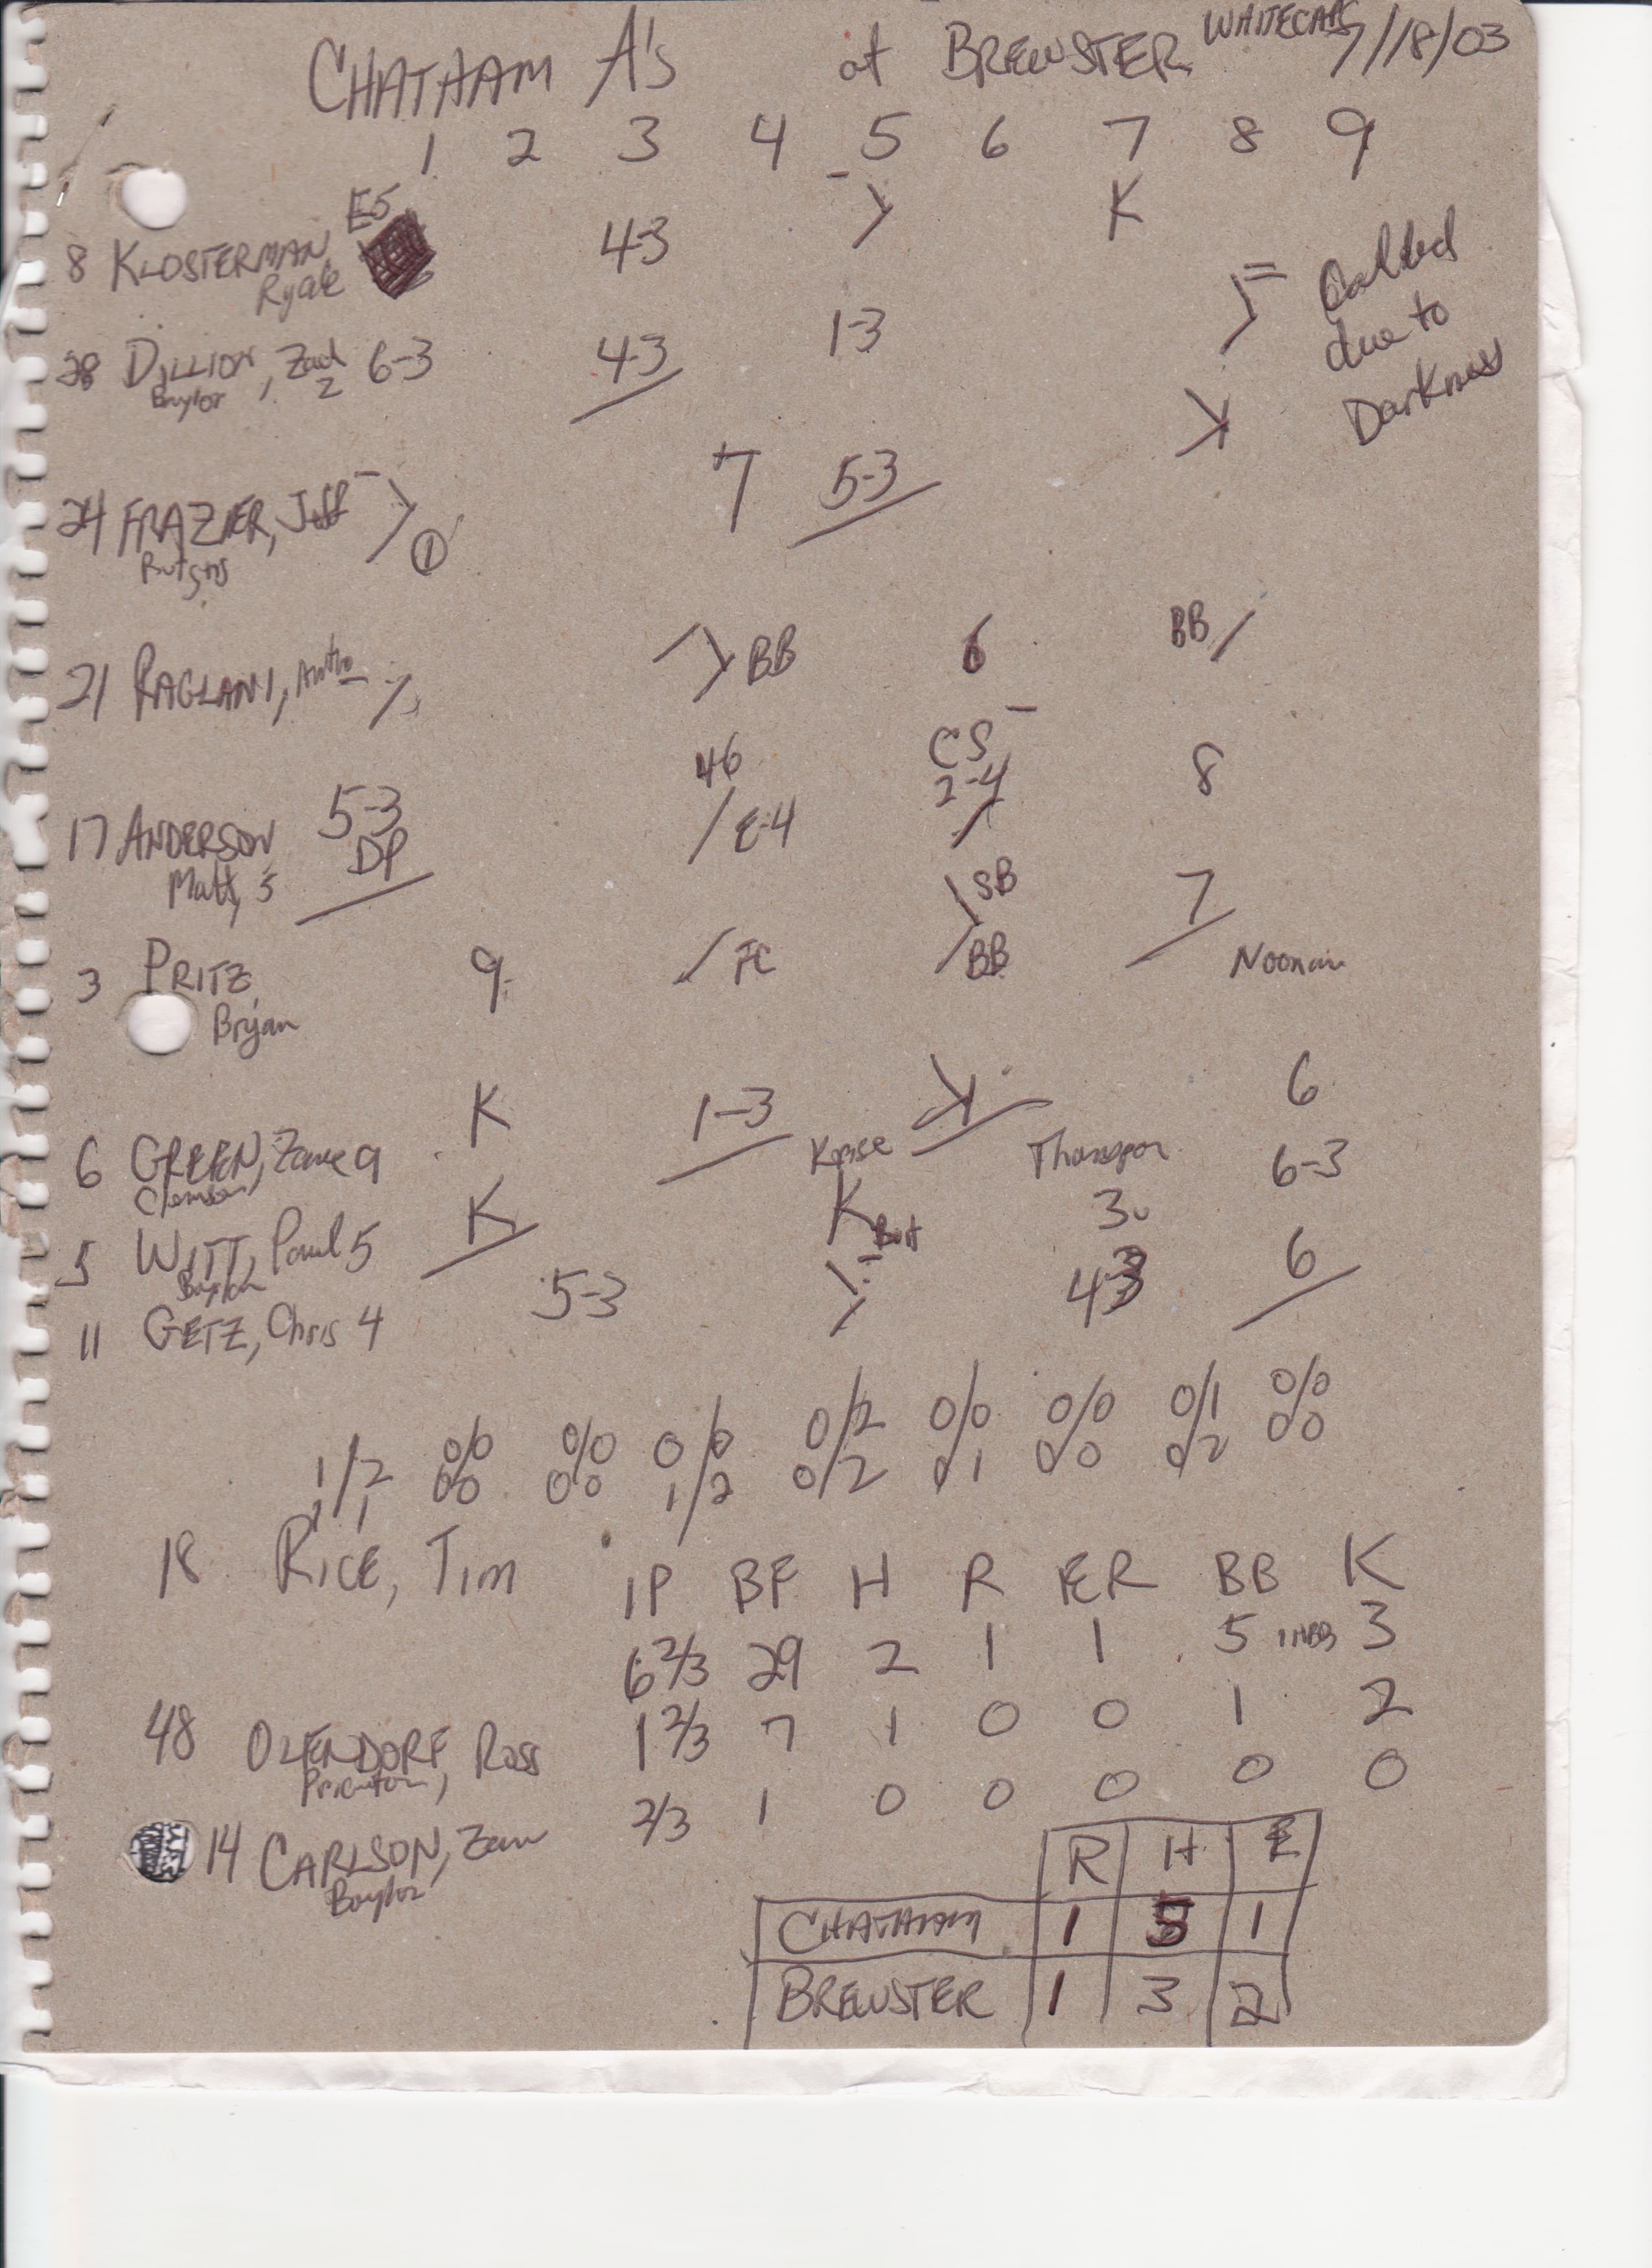 CHATHAM A's at BREWSTER WHITECAPS 7/18/03
1 2 3 4 5 6 7 8 9
E5
8 KLOSTERMAN, 43 K
Called
due to
Darkness
28 DILLION, Zach 2 6-3 43 1-3
Baylor
24 FRAZIER, Jeff 7 5-3
Rutgers
1
21 RAGLANI, BB 6 BB
17 ANDERSON 5-3 46 CS 8
Matt, 3 DP E-4 2-4
SB 7
3 PRITZ, 9 FC BB Noonan
Bryan
6 GREEN, Zane 9 K 1-3 K Thompson 6
Clemson
5 WITT, Paul 5 K K 3u 6-3
Baylor
11 GETZ, Chris 4 5-3 43 6
1/2 0/0 0/0 0/0 0/2 0/0 0/0 0/1 0/0
1/1 0 0 0 0 1/2 0/2 0 1 0 0 0 2 0 0
18 RICE, Tim IP BF H R ER BB K
6 2/3 29 2 1 1 5 1 HBB 3
48 OLFENDORF, Ross 1 2/3 7 1 0 0 1 2
Princeton
14 CARLSON, 2/3 1 0 0 0 0 0
Baylor
R H E
CHATHAM 1 5 1
BREWSTER 1 3 2